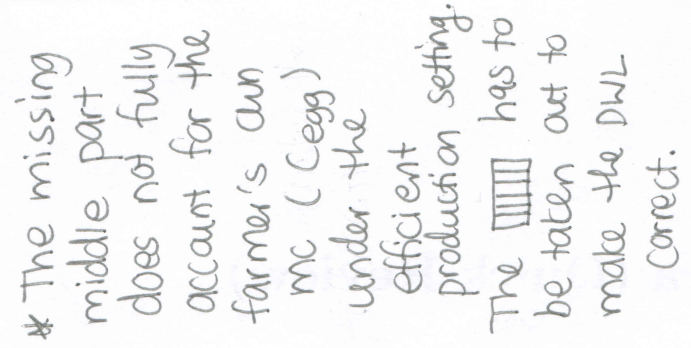 * The missing
middle part
does not fully
account for the
farmer's own
mc (Cegg)
under the
efficient
production setting.
The has to
be taken out to
make the DWL
correct.